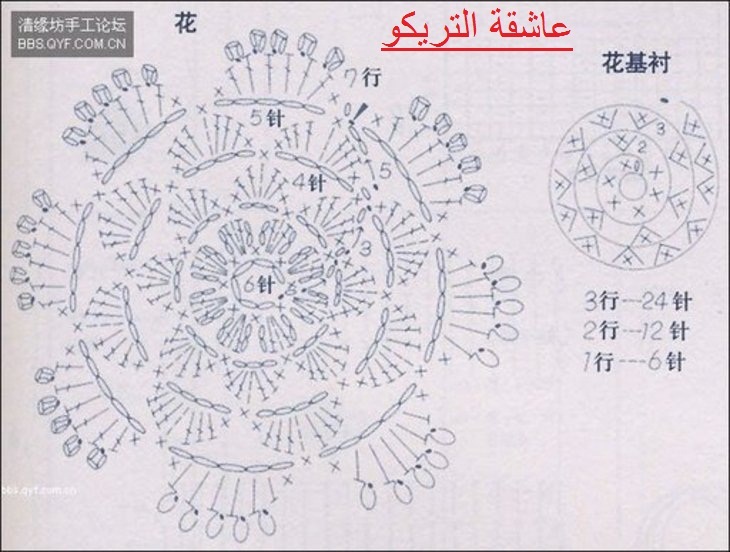 清缘坊手工论坛
BBS.QYF.COM.CN
花
عاشقة التريكو
花基衬
7行
5针
4针
5
3
6针
3
2
3行---24针
2行---12针
1行---6针
bbs.qyf.com.cn